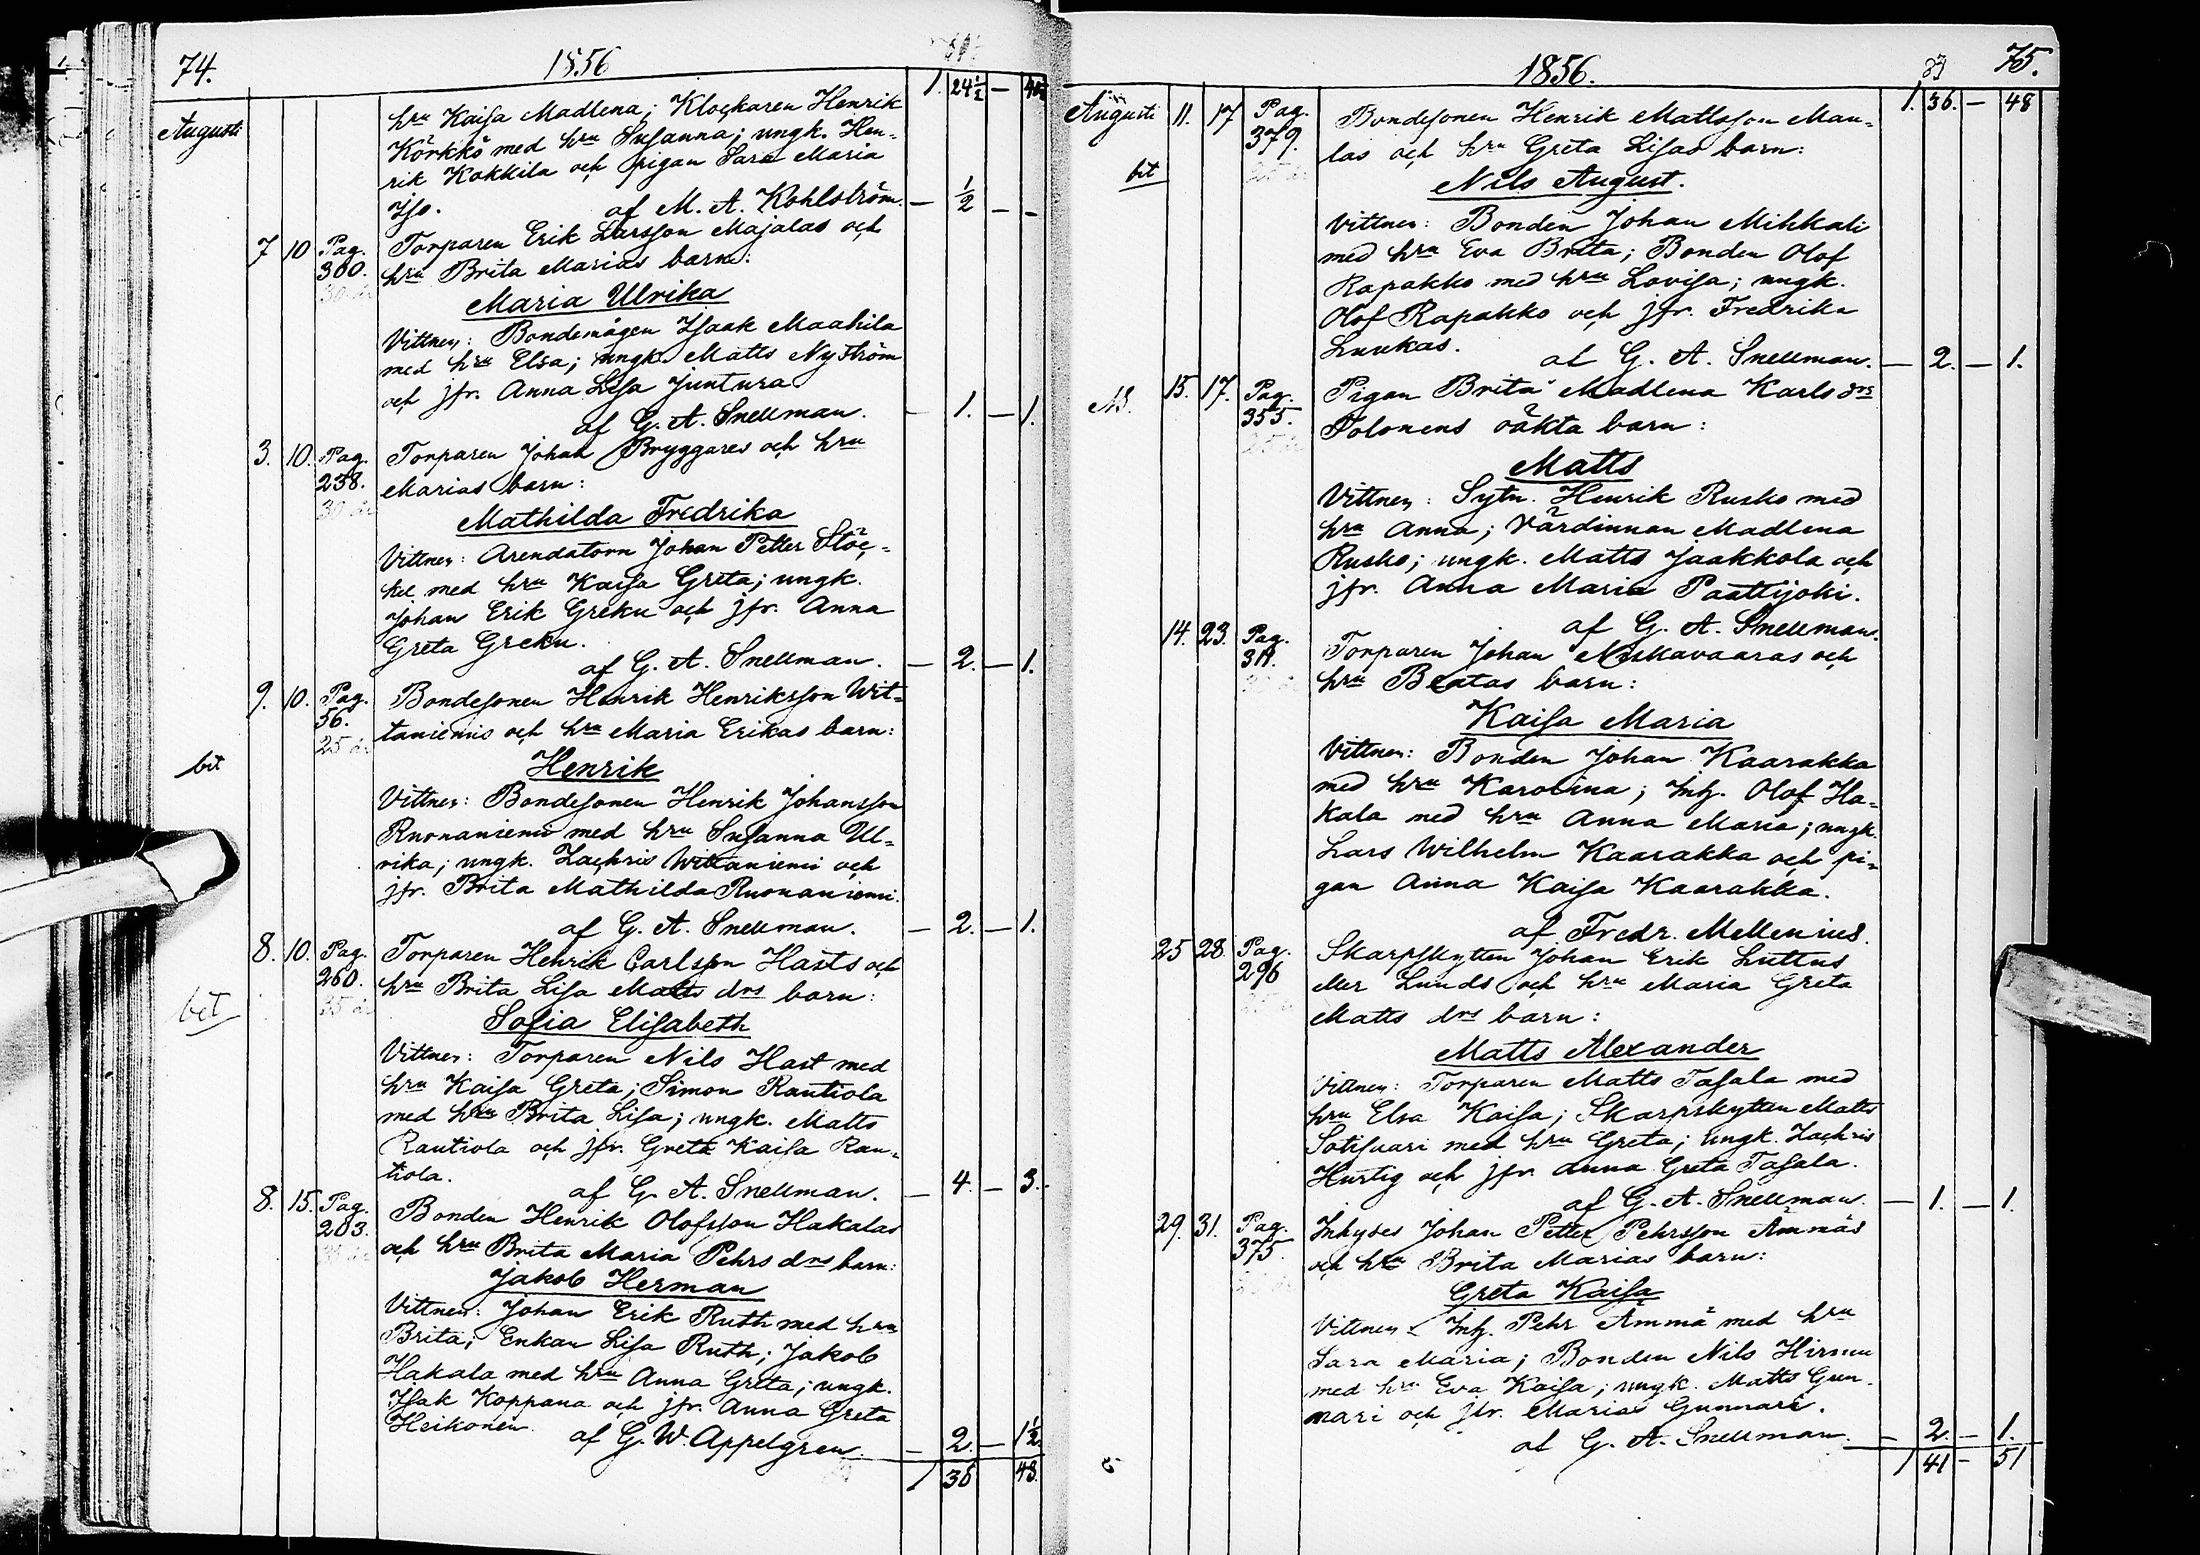 74. 1856
Augusti hru Kaisa Madlena; Klockaren Henrik 1. 24½ —
Körkkö med hru Susanna; ungk. Hen-
rik Kokkila och pigan Sara Maria
Iso. af M. A. Kohlström. — ½ — -
7 10 Pag. 300. Torparen Erik Larsson Majalas och
hru Brita Marias barn:
30 år
Maria Ulrika
Vittnen: Bondemågen Isaak Maahila
med hru Elsa; ungk. Matts Nyström
och jfr. Anna Lisa Juntura
af G. A. Snellman. — 1. — 1.
3. 10. Pag. 238. Torparen Johan Bryggares och hru
Marias barn:
30 år
Mathilda Fredrika
Vittnen: Arendatorn Johan Petter Stöc-
kel med hru Kaisa Greta; ungk.
Johan Erik Greku och jfr. Anna
Greta Greku.
af G. A. Snellman. — 2. — 1.
9. 10. Pag. 56. Bondesonen Henrik Henriksson Wit-
25 år taniemis och hru Maria Erikas barn:
bet Henrik
Vittnen: Bondesonen Henrik Johansson
Ruonaniemi med hru Susanna Ul-
rika; ungk. Zachris Wittaniemi och
jfr. Brita Mathilda Ruonaniemi.
af G. A. Snellman. — 2. — 1.
8. 10. Pag. 260. Torparen Henrik Carlsson Hasts och
35 år hru Brita Lisa Matts drs barn:
bet Sofia Elisabeth
Vittnen: Torparen Nils Hast med
hru Kaisa Greta; Simon Rautiola
med hru Brita Lisa; ungk. Matts
Rautiola och jfr. Greta Kaisa Rau-
tiola. af G. A. Snellman. — 4. — 3.
8. 15. Pag. 203. Bonden Henrik Olofsson Hakalas
och hru Brita Maria Pehrs drs barn:
Jakob Herman
Vittnen: Johan Erik Ruth med hru
Brita; Enkan Lisa Ruth; Jakob
Hakala med hru Anna Greta; ungk.
Isak Koppana och jfr. Anna Greta
Heikonen. af G. W. Appelgren. — 2. — 1½
1 36 48.
1856. 75.
Augusti 11. 17 Pag. 379. Bondesonen Henrik Mattsson Mau- 1. 36. — 48
las och hru Greta Lisas barn:
bet Nils August.
Vittnen: Bonden Johan Mihkali
med hru Eva Brita; Bonden Olof
Rapakko med hru Lovisa; ungk.
Olof Rapakko och jfr. Fredrika
Luukas. af G. A. Snellman. — 2. — 1.
NB. 15. 17. Pag. 355. Pigan Brita Madlena Karls drs
Tolonens oäkta barn:
Matts
Vittnen: Sytn. Henrik Rusko med
hru Anna; Värdinnan Madlena
Rusko; ungk. Matts Jaakkola och
jfr. Anna Maria Paattijoki.
af G. A. Snellman.
14. 23. Pag. 311. Torparen Johan Niskavaaras och
hru Beatas barn:
Kaisa Maria
Vittnen: Bonden Johan Kaarakka
med hru Karolina; Inh. Olof Ha-
kala med hru Anna Maria; ungk.
Lars Wilhelm Kaarakka och pi-
gan Anna Kaisa Kaarakka.
af Fredr. Mellenius.
25 28. Pag. 296 Skarpskytten Johan Erik Luttus
eller Lunds och hru Maria Greta
Matts drs barn:
Matts Alexander
Vittnen: Torparen Matts Tasala med
hru Elsa Kaisa; Skarpskytten Matts
Sotisuari med hru Greta; ungk. Zachris
Hurtig och jfr Anna Greta Tasala.
af G. A. Snellman. — 1. — 1.
29. 31. Pag. 375. Inhyses Johan Petter Pehrsson Ämmäs
och hru Brita Marias barn:
Greta Kaisa
Vittnen: Inh. Pehr Ämmä med hru
Sara Maria; Bonden Nils Hirmu
med hru Eva Kaisa; ungk. Matts Gun-
nari och jfr. Maria Gunnari.
af G. A. Snellman. — 2. — 1.
1 41 — 51